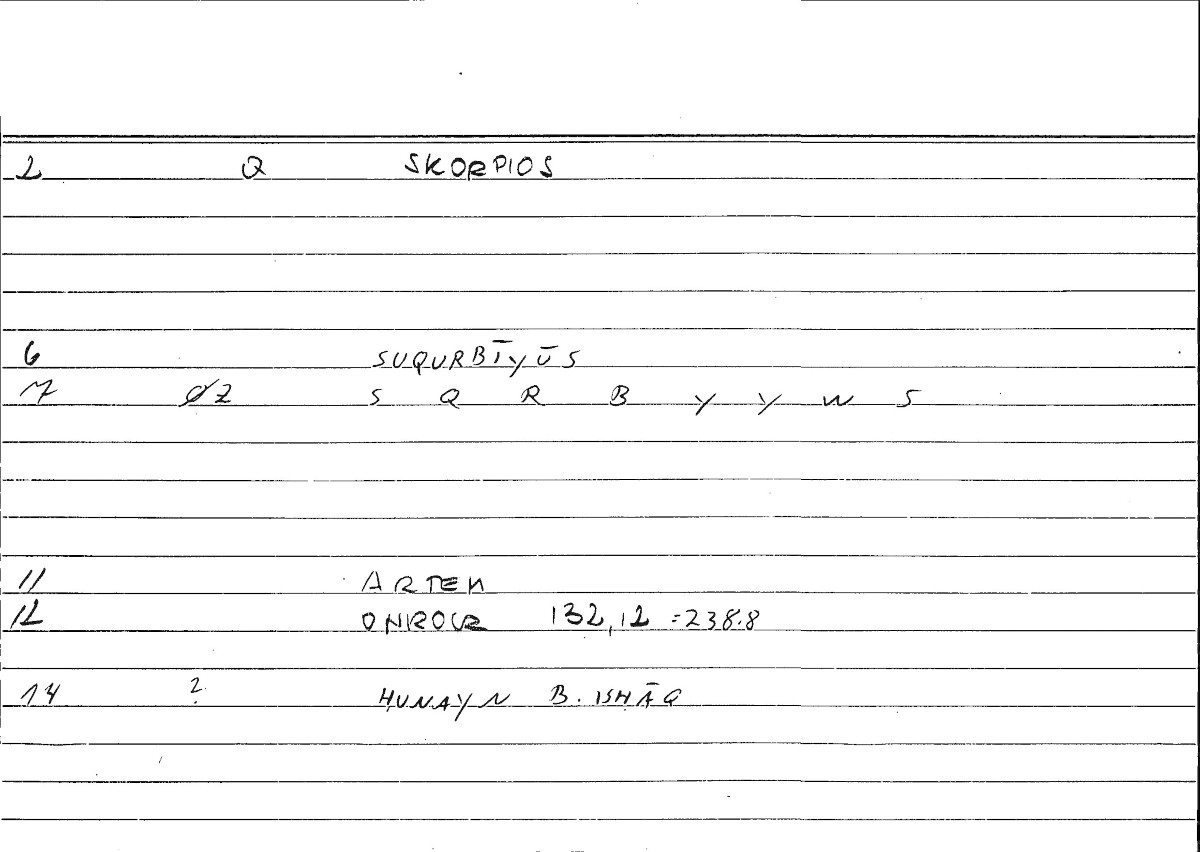 2 Q SKORPIOS
6 SUQURBĪYŪS
7 ØZ S Q R B Y Y W S
11 ARTEM
12 ONIROCR 132,12 =238.8
14 ? ḤUNAYN B. ISḤĀQ